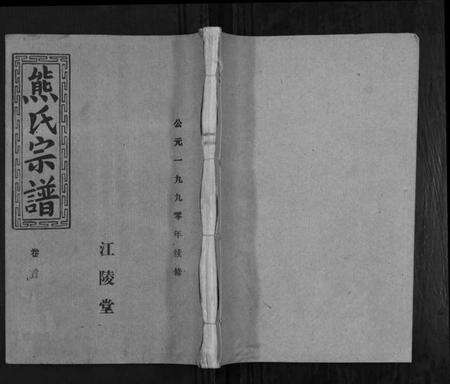 公元一九九零年续修
江陵堂
熊氏宗譜
卷首